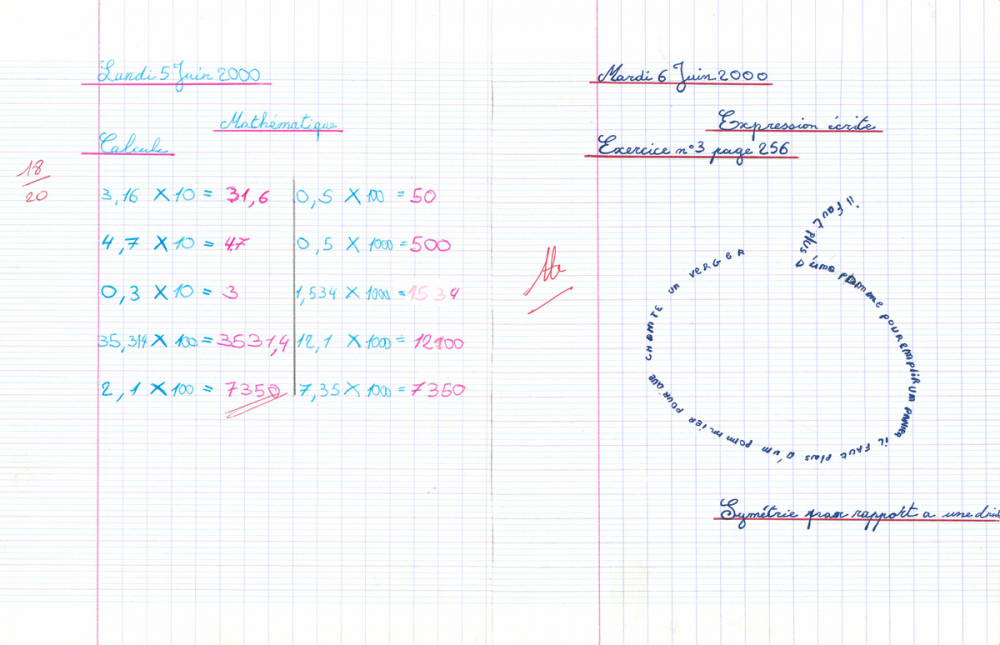 Lundi 5 Juin 2000
Mathématique
Calculs
18
20
3,16 X 10 = 31,6
4,7 X 10 = 47
0,3 X 10 = 3
35,314 X 100 = 3531,4
2,1 X 100 = 7350
0,5 X 100 = 50
0,5 X 1000 = 500
1,534 X 1000 = 1534
12,1 X 1000 = 12100
7,35 X 1000 = 7350
Mardi 6 Juin 2000
Expression écrite
Exercice n°3 page 256
il faut plus
D'une pomme POUR EMPLIR UN PANIER il FAUT plus D'UN POMMIER POUR QUE CHANTE UN VERGER
Symétrie par rapport a une